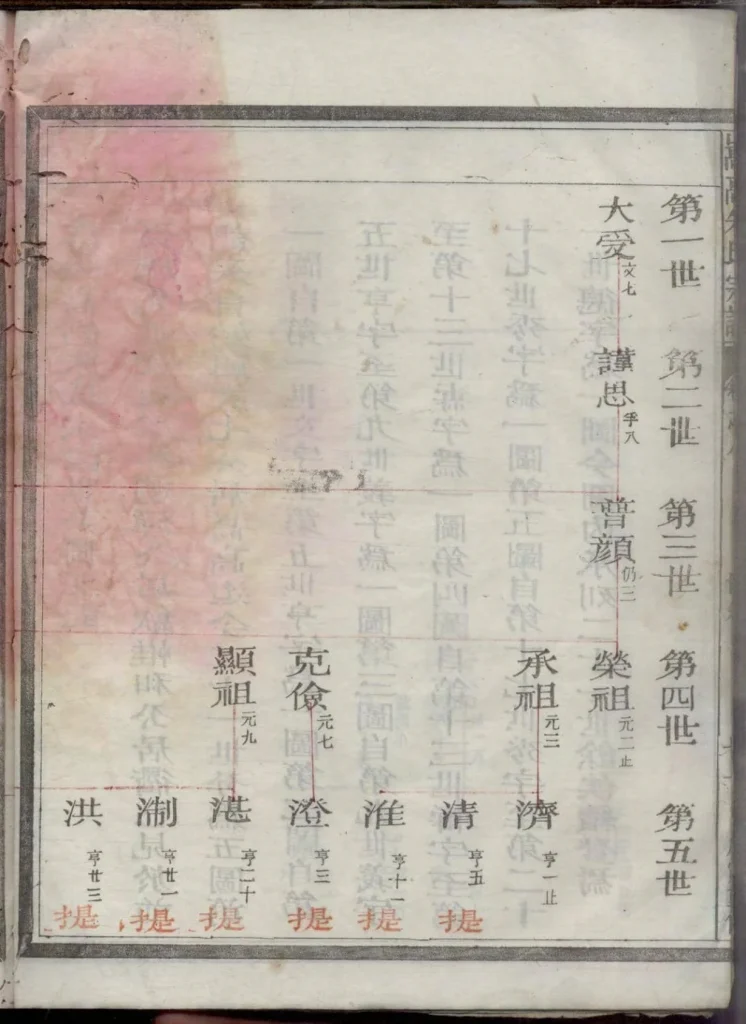 第一世
第二世
第三世
第四世
第五世
大受 文七
謹思 孚八
普顏 仍三
榮祖 元二止
承祖 元三
克儉 元七
顯祖 元九
濟 亨一止
清 亨五 提
淮 亨十一 提
澄 亨三 提
湛 亨二十 提
淛 亨廿一 提
洪 亨廿三 提